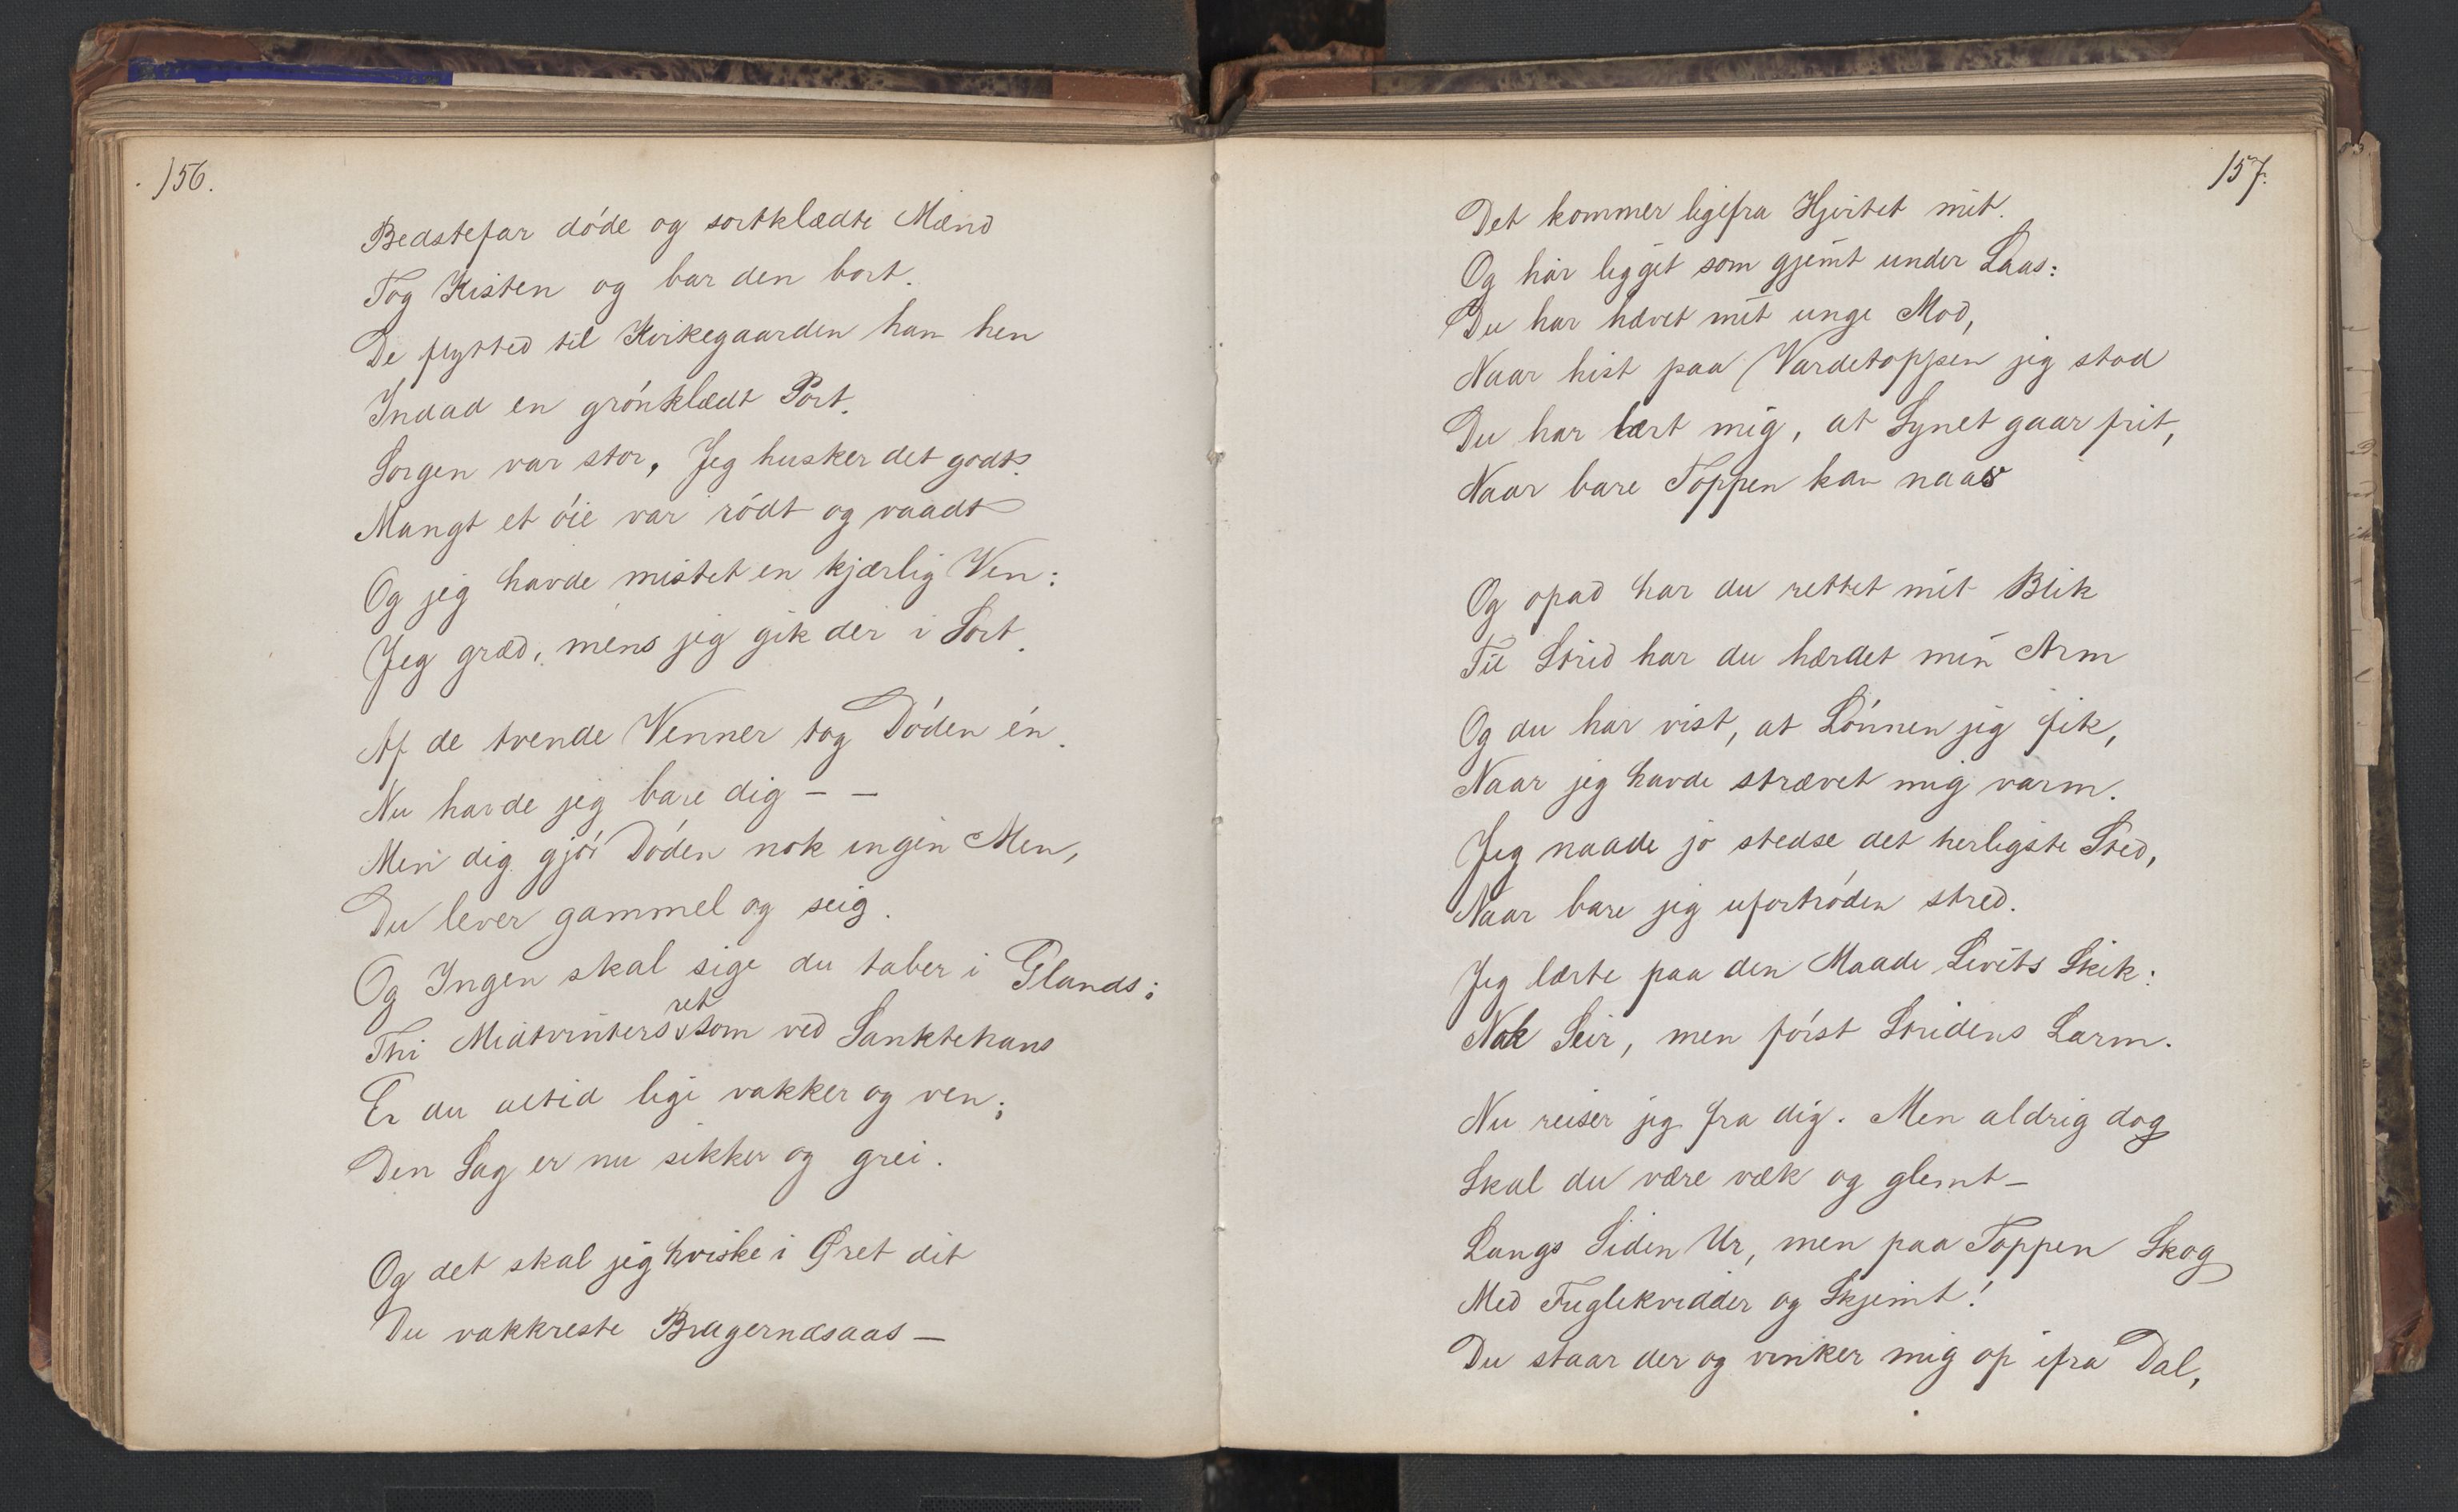 156.
Bedstefar døde og sortklædte Mænd
Tog Kisten og bar den bort.
De flytted til Kirkegaarden ham hen
Indad en grønklædt Port.
Sorgen var stor, Jeg husker det godt.
Mangt et øie var rødt og vaadt
Og jeg havde mistet en kjærlig Ven:
Jeg græd, mens jeg gik der i Sort.
Af de tvende Venner tog Døden én.
Nu havde jeg bare dig – –
Men dig gjør Døden nok ingen Men,
Du lever gammel og seig.
Og Ingen skal sige du taber i Glands;
Thi Midtvinters ret som ved Sanktehans
Er du altid lige vakker og ven;
Den Sag er nu sikker og grei.
Og det skal jeg hviske i Øret dit
Du vakkreste Bragernæsaas –
157.
Det kommer ligefra Hjertet mit.
Og har ligget som gjemt under Laas:
Du har hævet mit unge Mod,
Naar hist paa Vardetoppen jeg stod
Du har lært mig, at Synet gaar frit,
Naar bare Toppen kan naaes
Og opad har du rettet mit Blik
Til Strid har du hærdet min Arm
Og du har vist, at Lønnen jeg fik,
Naar jeg havde strævet mig varm.
Jeg naade jo stedse det herligste Sted,
Naar bare jeg ufortrøden stred.
Jeg lærte paa den Maade Livets Skik:
Nok Seir, men først Stridens Larm.
Nu reiser jeg fra dig. Men aldrig dog
Skal du være væk og glemt –
Langs Siden Ur, men paa Toppen Skog
Med Fuglekvidder og Skjemt!
Du staar der og vinker mig op ifra Dal,